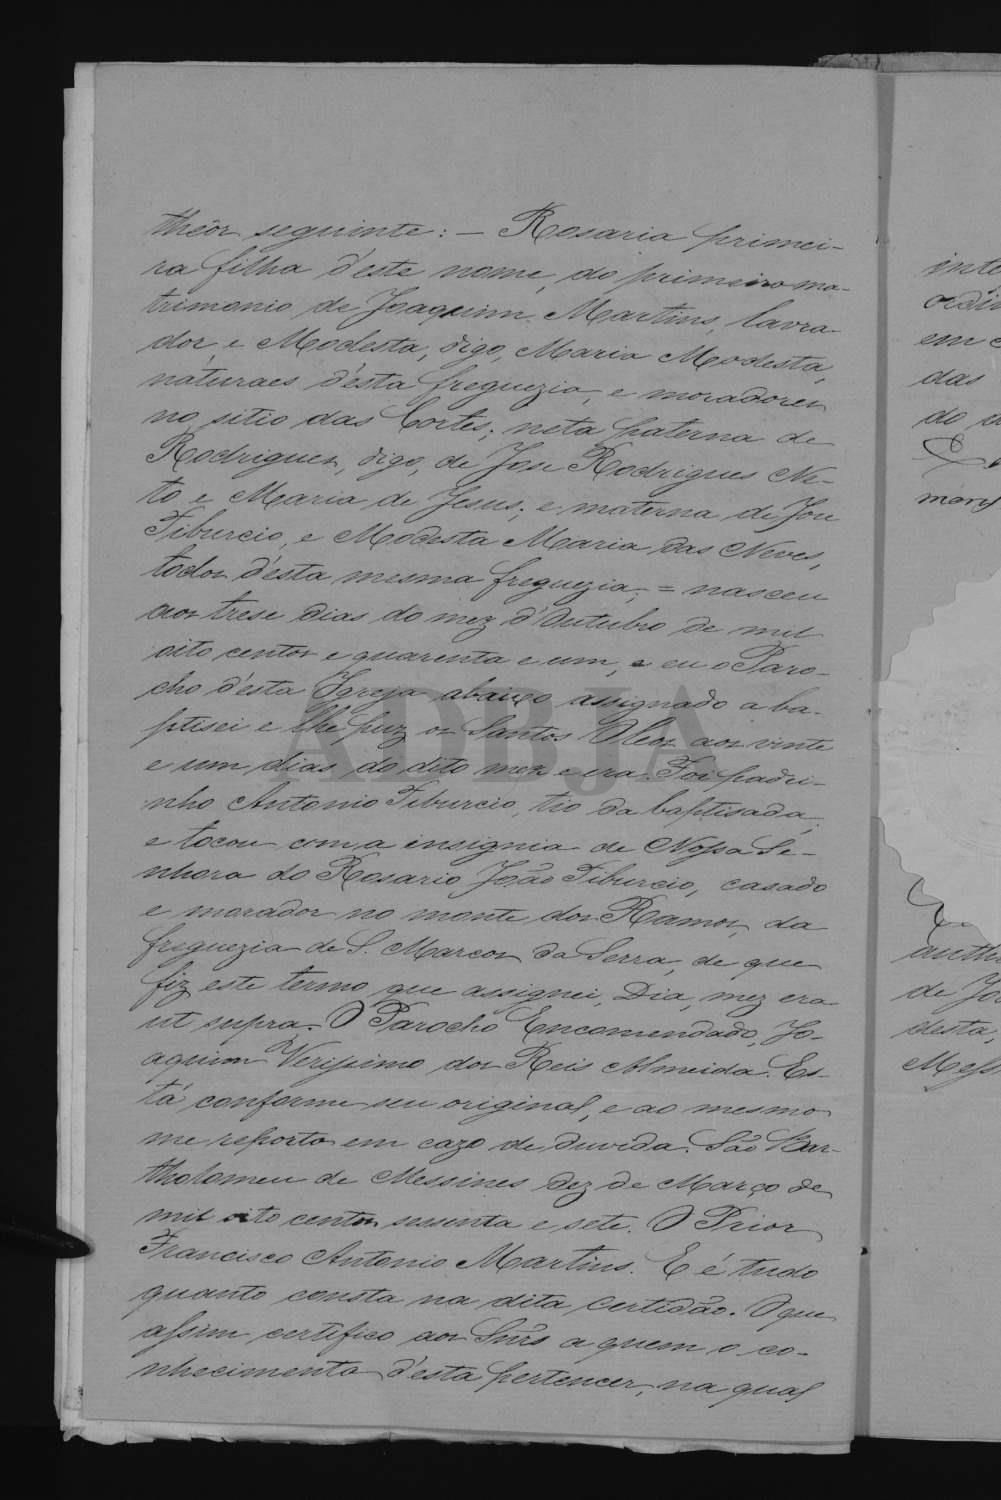 theôr seguinte: — Rosaria primei-
ra filha d'este nome, do primeiro ma-
trimonio de Joaquim Martins, lavra-
dor, e Modesta, digo, Maria Modesta,
naturaes d'esta freguezia, e moradores
no sitio das Cortes; neta paterna de
Rodrigues, digo, de Jose Rodrigues Ne-
to e Maria de Jesus; e materna de Jose
Tiburcio, e Modesta Maria das Neves,
todos d'esta mesma freguezia; = nasceu
aos trese dias do mez d'Outubro de mil
oito centos e quarenta e um, e eu o Paro-
cho d'esta Igreja abaiço assignado a ba-
ptisei e lhe puz os Santos Oleos aos vinte
e um dias do dito mez e era. Foi padri-
nho Antonio Tiburcio, tio da baptisada,
e tocou com a insignia de Nossa Se-
nhora do Rosario João Tiburcio, casado
e morador no monte dos Ramos, da
freguezia de S. Marcos da Serra, de que
fiz este termo que assignei, Dia, mez era
ut supra. O Parocho Encomendado, Jo-
aquim Verissimo dos Reis Almeida. Es-
tá conforme seu original, e ao mesmo
me reporto em cazo de duvida. São Bar-
tholomeu de Messines dez de Março de
mil oito centos sessenta e sete. O Prior
Francisco Antonio Martins. E é tudo
quanto consta na dita certidão. O que
assim certifico aos Snrs a quem o co-
nhecimento d'esta pertencer, na qual
ADBJA
inte
em
das
do
desta,
Mess